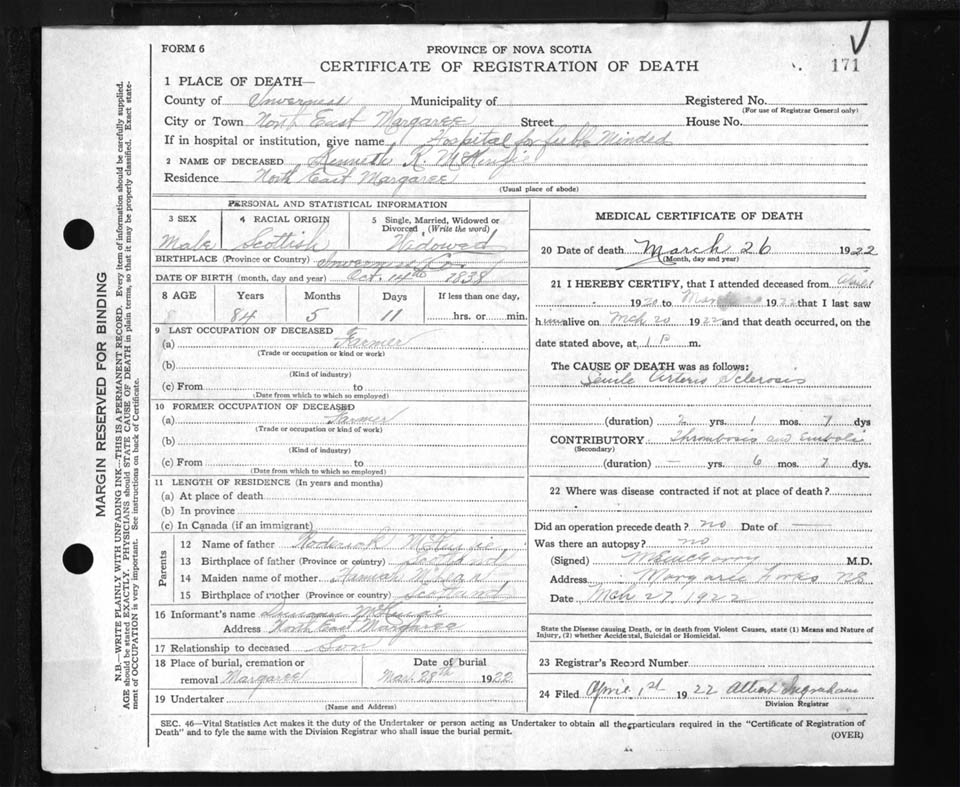 FORM 6
PROVINCE OF NOVA SCOTIA
CERTIFICATE OF REGISTRATION OF DEATH
171
1 PLACE OF DEATH—
County of Inverness Municipality of Registered No.
(For use of Registrar General only)
City or Town North East Margaree Street House No.
If in hospital or institution, give name Hospital for feeble Minded
2 NAME OF DECEASED Kenneth R. McKenzie
Residence North East Margaree
(Usual place of abode)
PERSONAL AND STATISTICAL INFORMATION
3 SEX 4 RACIAL ORIGIN 5 Single, Married, Widowed or Divorced (Write the word)
Male Scottish Widowed
BIRTHPLACE (Province or Country) Inverness Co
DATE OF BIRTH (month, day and year) Oct. 14th 1838
8 AGE Years Months Days If less than one day,
84 5 11 hrs. or min.
9 LAST OCCUPATION OF DECEASED
(a) Farmer
(Trade or occupation or kind or work)
(b)
(Kind of industry)
(c) From to
(Date from which to which so employed)
10 FORMER OCCUPATION OF DECEASED
(a) Farmer
(Trade or occupation or kind of work)
(b)
(Kind of industry)
(c) From to
(Date from which to which so employed)
11 LENGTH OF RESIDENCE (In years and months)
(a) At place of death
(b) In province
(c) In Canada (if an immigrant)
Parents
12 Name of father Roderick McKenzie
13 Birthplace of father (Province or country) Scotland
14 Maiden name of mother
15 Birthplace of mother (Province or country) Scotland
16 Informant's name Duncan McKenzie
Address North East Margaree
17 Relationship to deceased Son
18 Place of burial, cremation or removal Margaree
Date of burial
Mar 28th 1922
19 Undertaker
(Name and Address)
MEDICAL CERTIFICATE OF DEATH
20 Date of death March 26 1922
(Month, day and year)
21 I HEREBY CERTIFY, that I attended deceased from
1920 to 1922 that I last saw
him alive on Mch 20 1922 and that death occurred, on the
date stated above, at 1 P m.
The CAUSE OF DEATH was as follows:
Senile Arterio Sclerosis
(duration) 2 yrs. 1 mos. 7 dys
CONTRIBUTORY Thrombosis and Emboli
(Secondary)
(duration) — yrs. 6 mos. 7 dys.
22 Where was disease contracted if not at place of death?
Did an operation precede death? no Date of —
Was there an autopsy? no
(Signed) M.D.
Address Margaree Forks
Date Mch 27 1922
State the Disease causing Death, or in death from Violent Causes, state (1) Means and Nature of
Injury, (2) whether Accidental, Suicidal or Homicidal.
23 Registrar's Record Number
24 Filed April 1st 1922 Albert Ingraham
Division Registrar
SEC. 46—Vital Statistics Act makes it the duty of the Undertaker or person acting as Undertaker to obtain all the particulars required in the "Certificate of Registration of
Death" and to fyle the same with the Division Registrar who shall issue the burial permit.
(OVER)
MARGIN RESERVED FOR BINDING
N.B.—WRITE PLAINLY WITH UNFADING INK—THIS IS A PERMANENT RECORD. Every item of information should be carefully supplied.
AGE should be stated EXACTLY. PHYSICIANS should STATE CAUSE OF DEATH in plain terms, so that it may be properly classified. Exact state-
ment of OCCUPATION is very important. See instructions on back of Certificate.